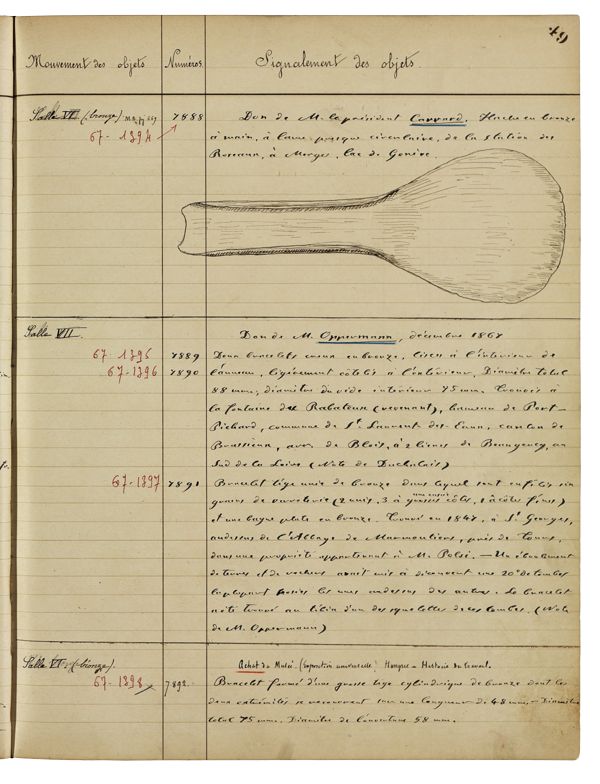 49
Mouvement des objets Numéros. Signalement des objets.
Salle VI (bronze) 7888 Don de M. le président Carrard. Hache en bronze
67-1394 à main, à lame presque circulaire, de la station des
Roseaux, à Morges, lac de Genève.
Salle VII. Don de M. Oppermann, décembre 1867
67-1395 7889 Deux bracelets creux en bronze, lisses à l'intérieur de
67-1396 7890 l'anneau, légèrement côtelés à l'extérieur, Diamètre total
88 mm, diamètre du vide intérieur 75 mm. Trouvés à
la fontaine des Rabateux (revenant), hameau de Port-
Pichard, commune de St Laurent-des-Eaux, canton de
de Blois, à 2 lieues de Beaugency, au
Sud de la Loire (Note de Duchalais)
67-1397 7891 Bracelet tige unie de bronze dans lequel sont enfilés six
grains de verroterie (2 unis, 3 à grosses côtes, 1 à côtes fines)
et une bague plate en bronze. Trouvé en 1847, à St Georges,
au dessus de l'Abbaye de Marmoutiers, près de Tours,
dans une propriété appartenant à M. – Un éboulement
de terres et de rochers avait mis à découvert une 20e de tombes
les unes au dessus des autres. Le bracelet
a été trouvé au tibia d'un des squelettes de ces tombes. (Note
de M. Oppermann)
Salle VI (bronze). Achat du Musée. (Exposition universelle! Hongrie – Histoire du travail.
67-1398 7892 Bracelet formé d'une grosse tige cylindrique de bronze dont les
deux extrémités se recouvrent sur une longueur de 48 mm. – Diamètre
total 75 mm. Diamètre de l'ouverture 58 mm.